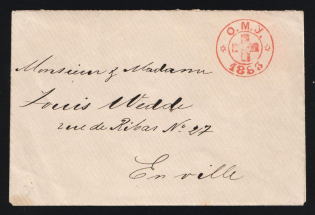 O.M.У.
1863
Monsieur & Madame
Louis Wedde
rue de Ribas No 27
En ville